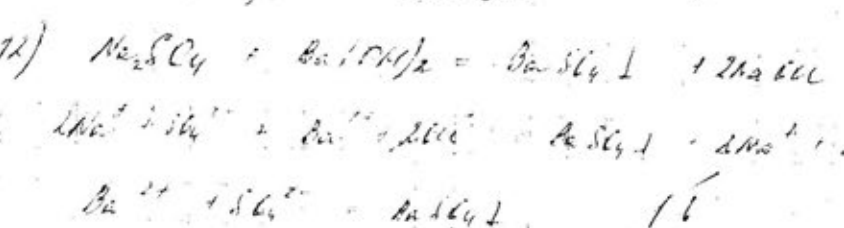 12) Na₂SO₄ + Ba(OH)₂ = BaSO₄↓ + 2NaOH
2Na⁺ + SO₄²⁻ + Ba²⁺ + 2OH⁻ = BaSO₄↓ + 2Na⁺ +
Ba²⁺ + SO₄²⁻ = BaSO₄↓